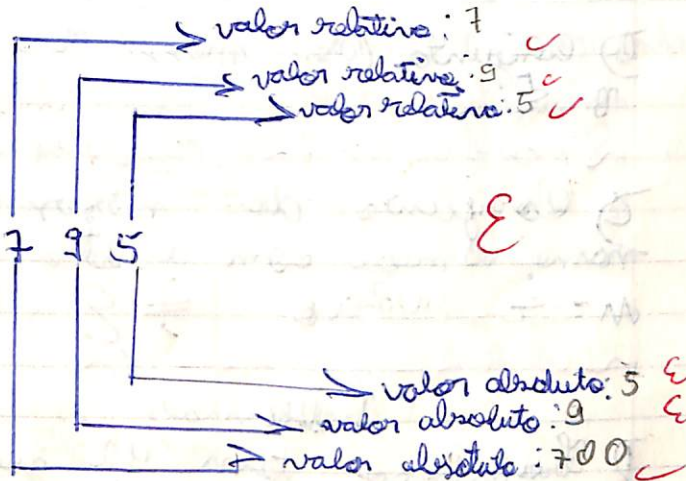 valor relativo: 7
valor relativo: 9
valor relativo: 5
7 9 5
valor absoluto: 5
valor absoluto: 9
valor absoluto: 700